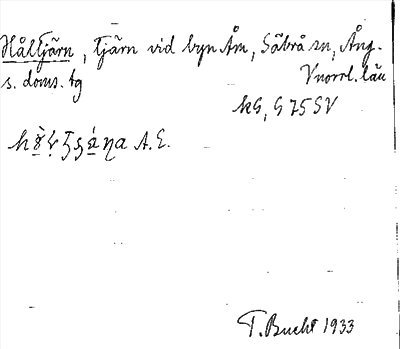 Håltjärn, tjärn vid byn Åm, Säbrå sn, Ång.
s. doms. tg Vnorrl. län
KG, G 75 SV
A.E.
T. Bucht 1933